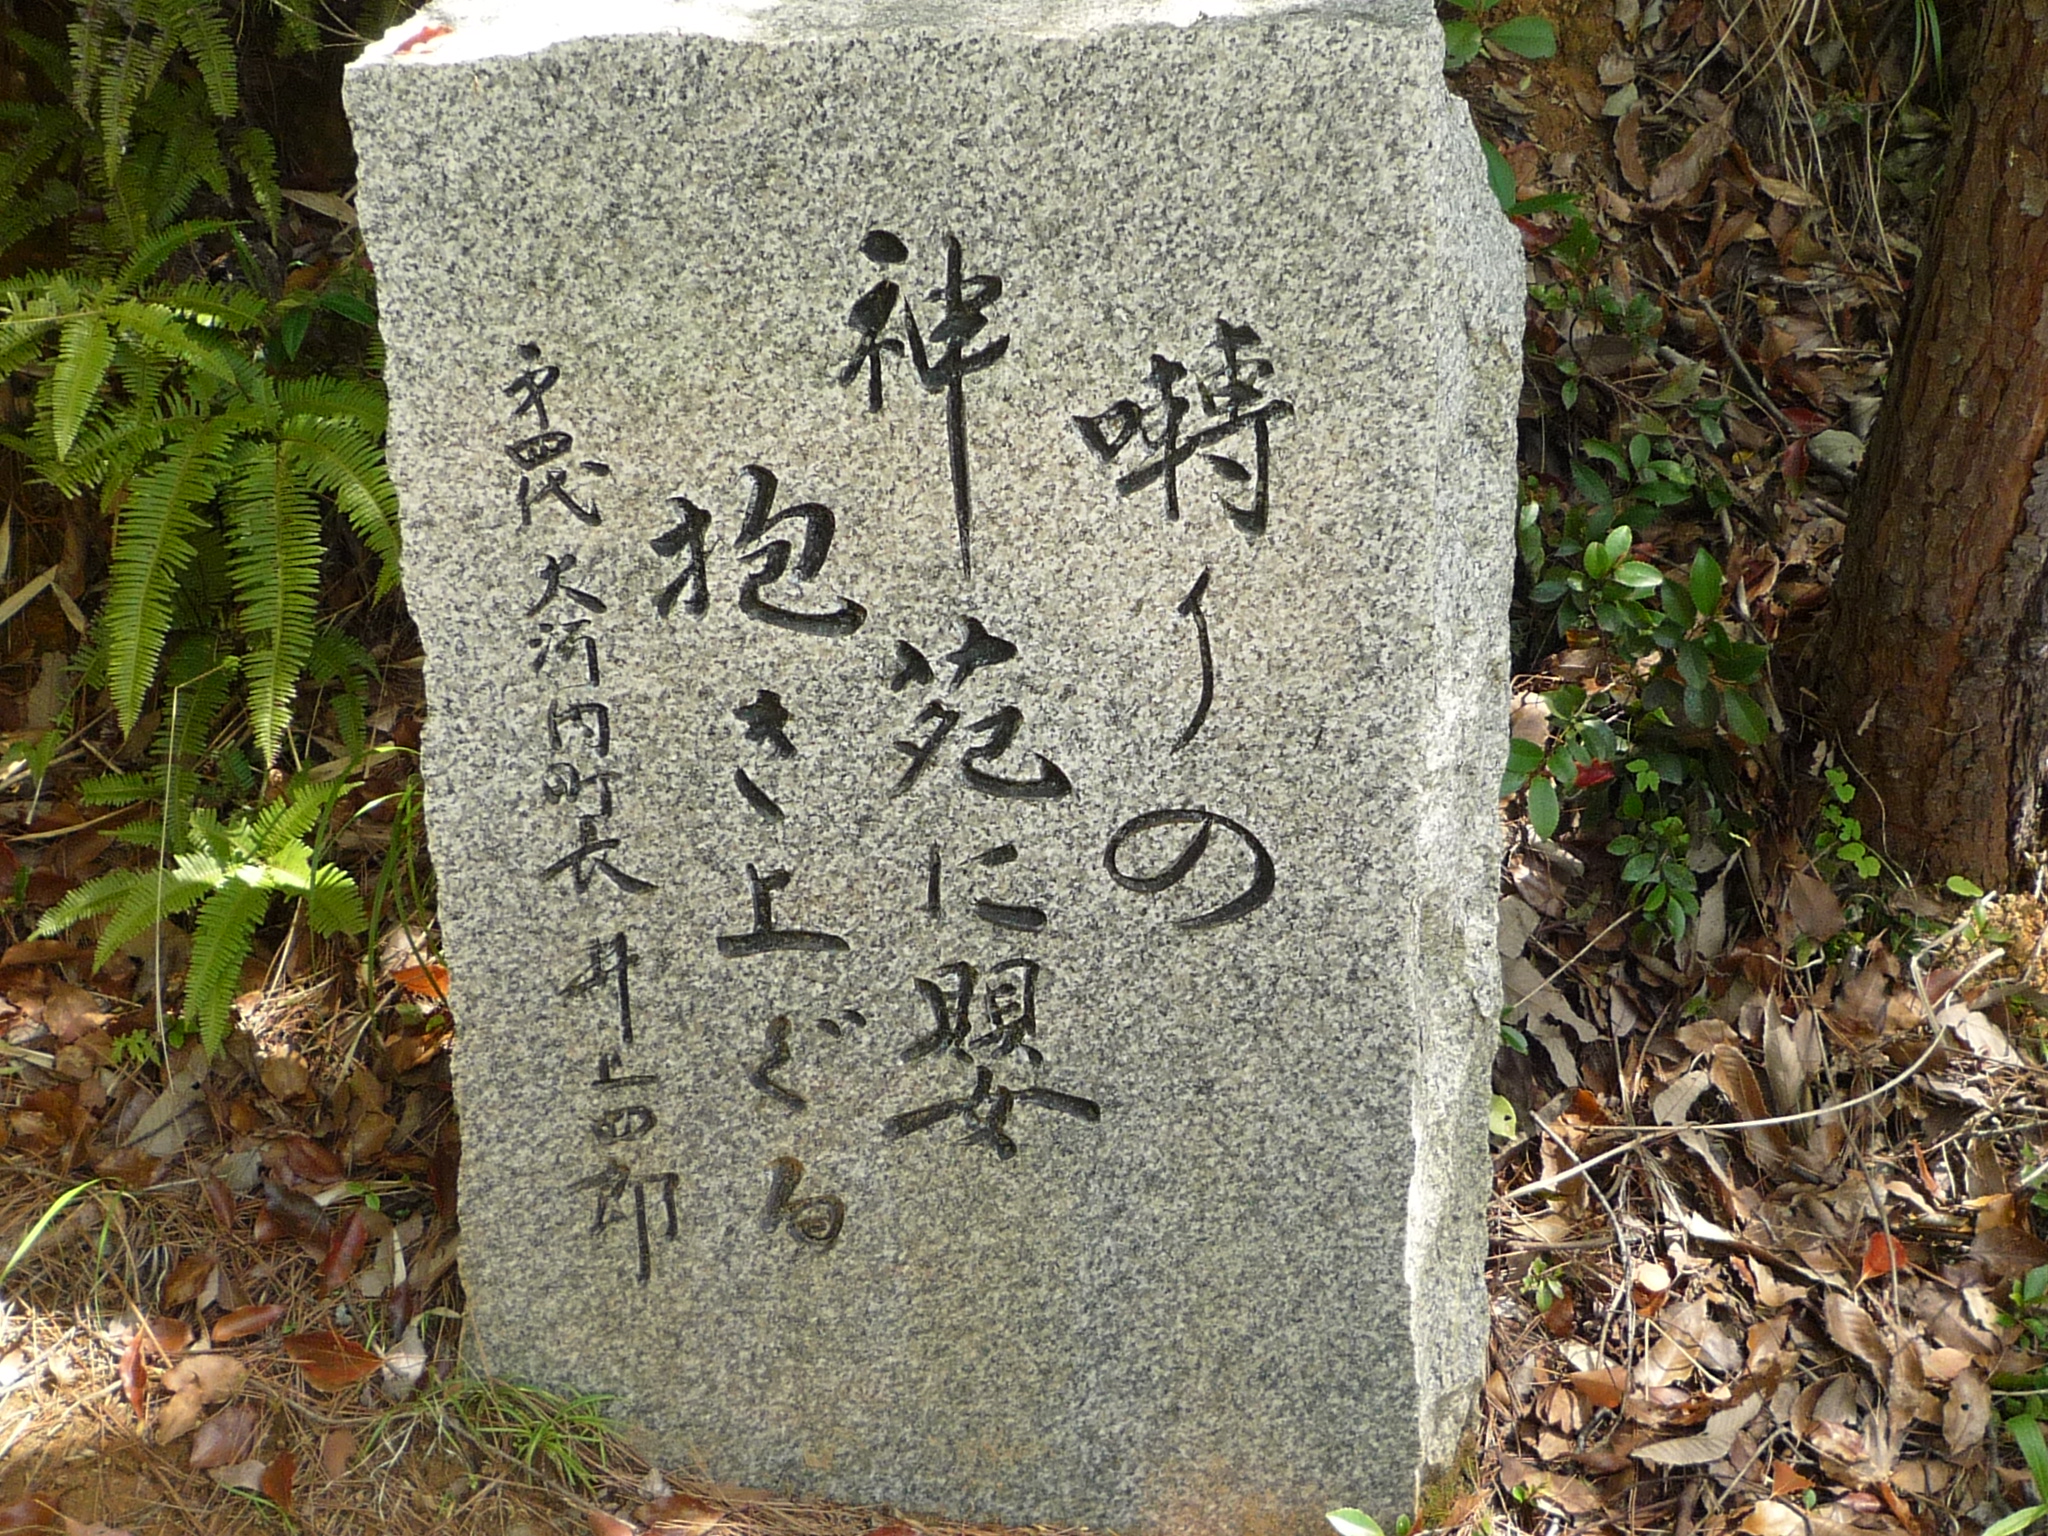 囀りの
神苑に嬰
抱き上ぐる
才四代 大河内町長 井上四郎